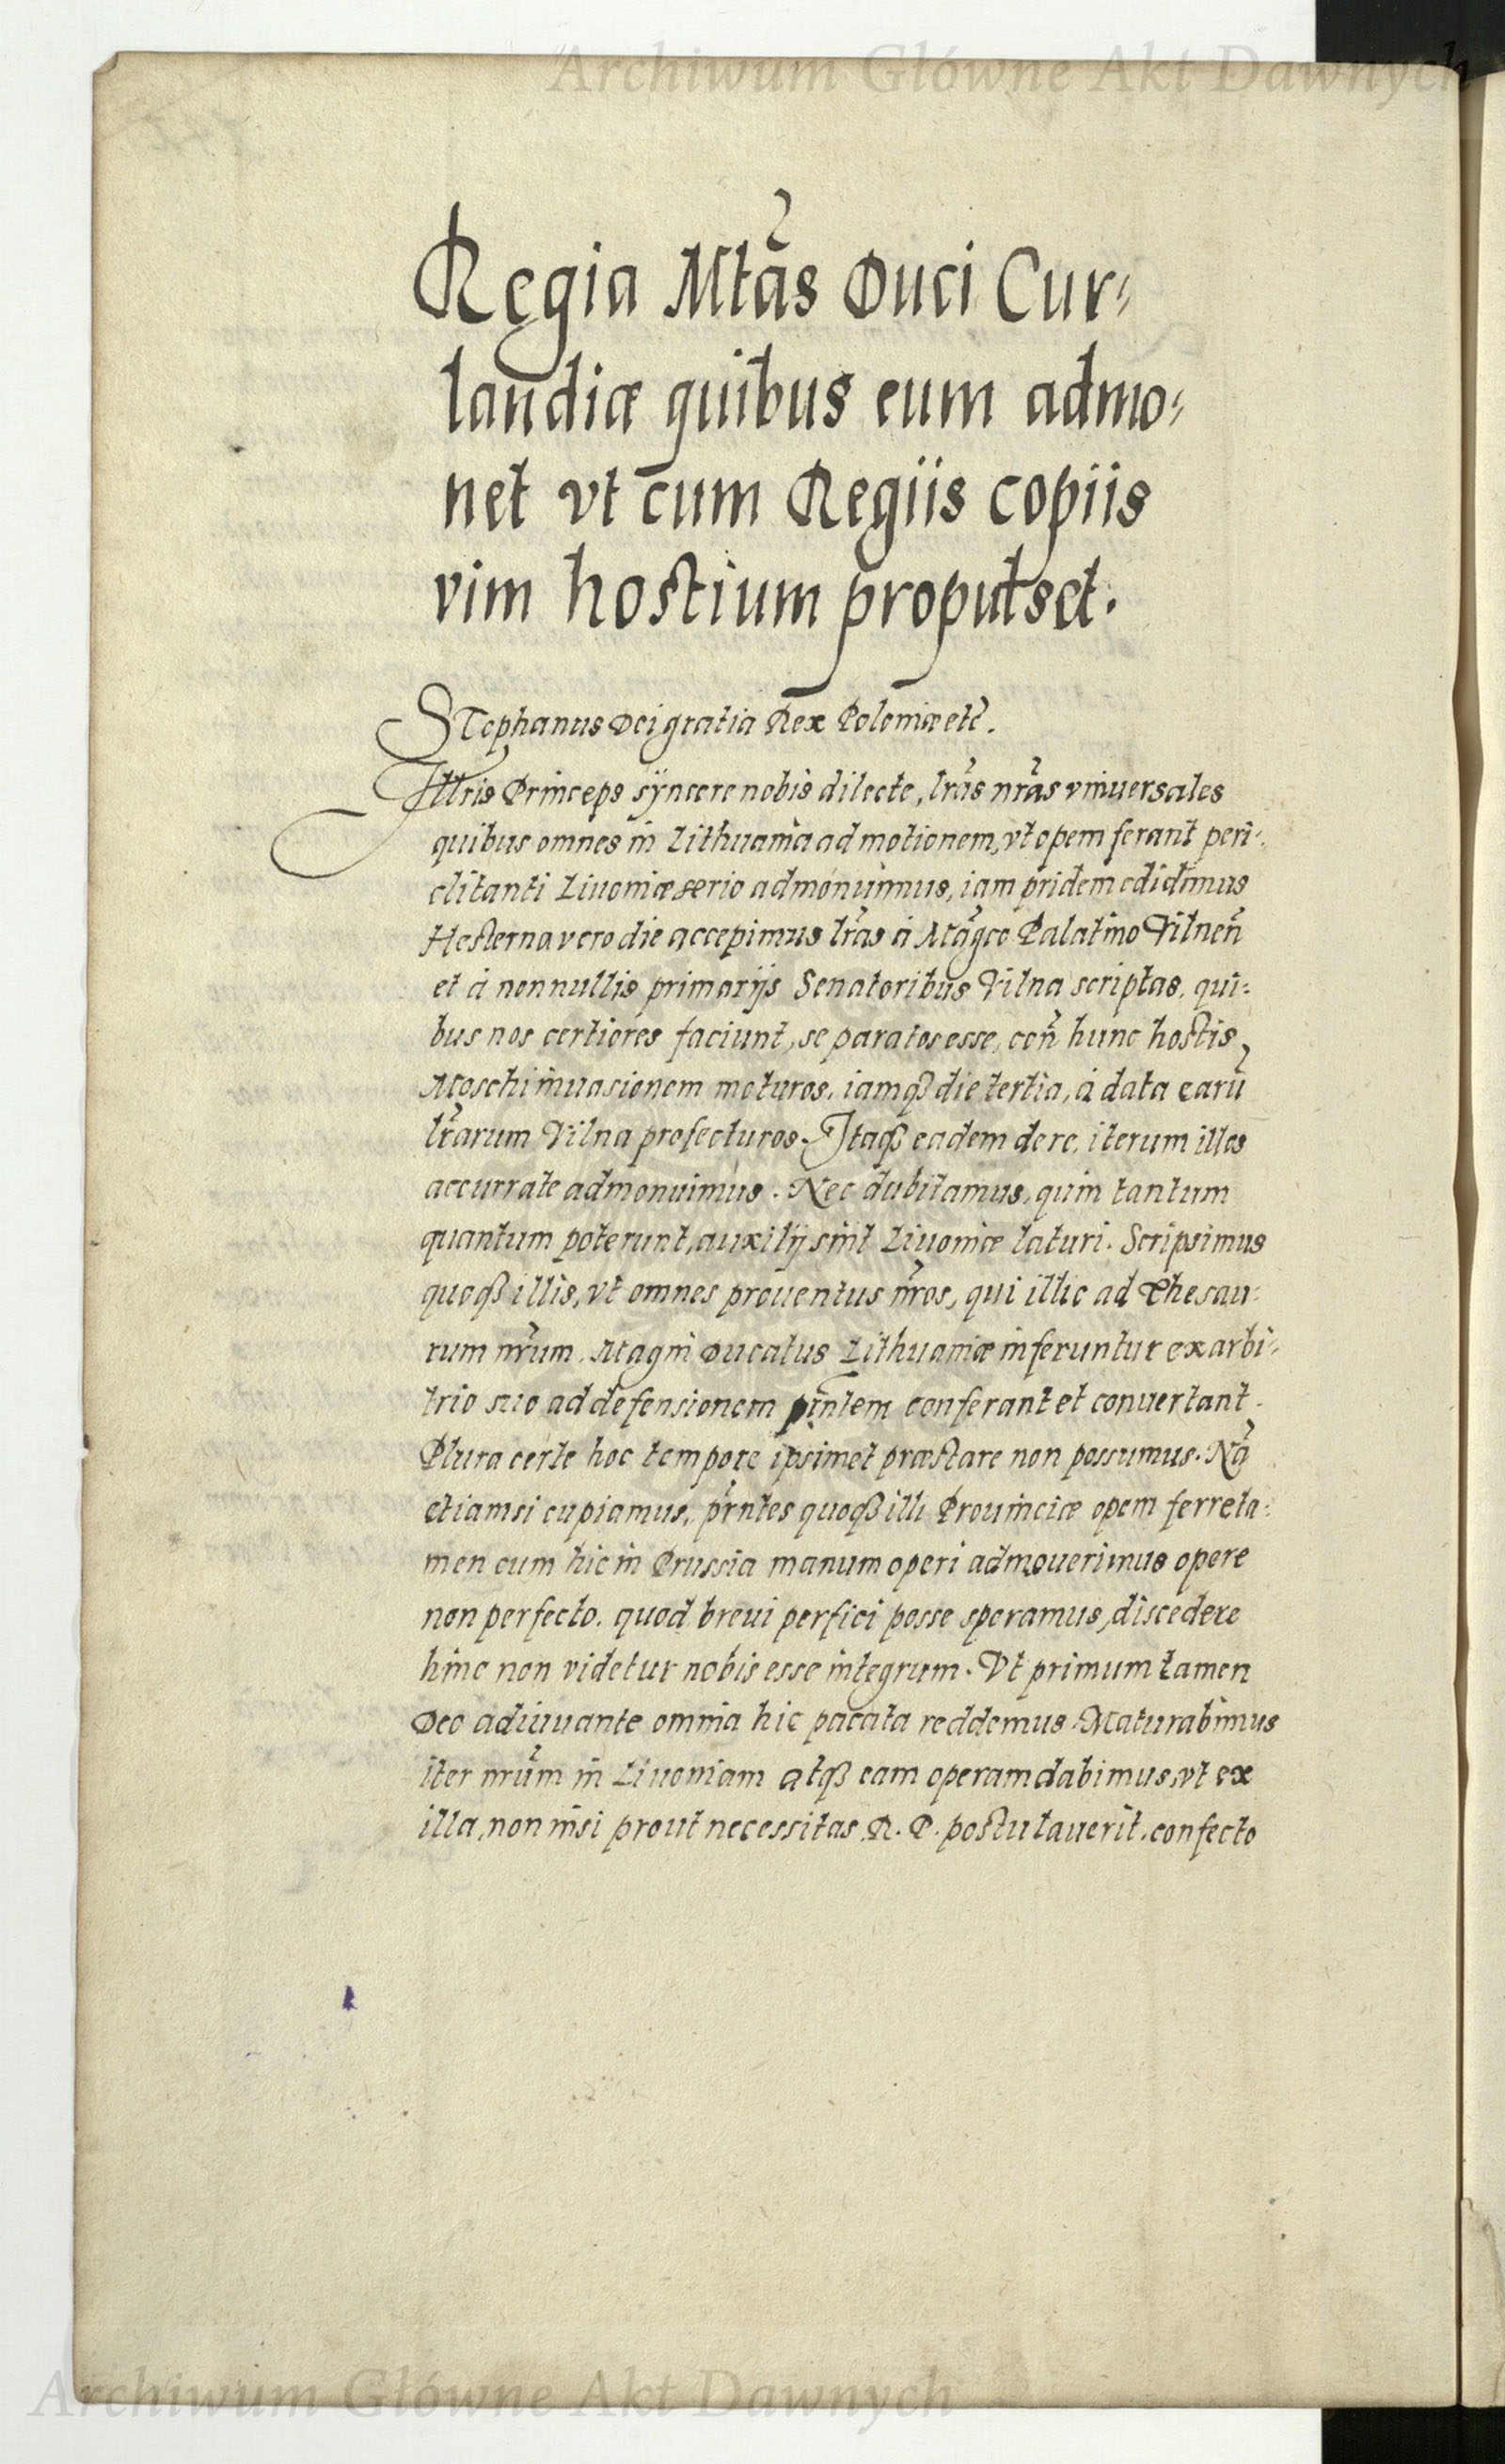 Archiwum Główne Akt Dawnych
Regia Mtãs Duci Cur⸗
landiæ quibus eum admo⸗
net vt cum Regiis copiis
vim hostium propulset.
Stephanus Dei gratia Rex Poloniæ etc̃.
Illris Princeps syncere nobis dilecte, lrãs nrãs vniuersales
quibus omnes in Lithuania ad motionem, vt opem ferant peri⸗
clitanti Liuoniæ serio admonuimus, iam pridem edidimus
Hesterna vero die accepimus lrãs à Mãgco Palatino Vilneñ
et à nonnullis primarijs Senatoribus Vilna scriptas, qui⸗
bus nos certiores faciunt, se paratos esse, coñ hunc hostis
Moschi inuasionem moturos, iamqȝ die tertia, à data earũ
lrãrum Vilna profecturos. Itaqȝ eadem de re, iterum illos
accurrate admonuimus. Nec dubitamus, quin tantum
quantum poterunt, auxilij sint Liuoniæ laturi. Scripsimus
quoqȝ illis, vt omnes prouentus nr̃os, qui illic ad Thesau⸗
rum nr̃um Magni Ducatus Lithuaniæ inferuntur ex arbi⸗
trio suo ad defensionem pñtem conferant et conuertant.
Plura certe hoc tempore ipsimet præstare non possumus. Nã
etiamsi cupiamus, pr̃ntes quoqȝ illi Prouinciæ opem ferre ta⸗
men cum hic in Prussia manum operi admouerimus opere
non perfecto, quod breui perfici posse speramus, discedere
hinc non videtur nobis esse integrum. Vt primum tamen
Deo adiuuante omnia hic pacata reddemus Maturabimus
iter nr̃um in Liuoniam atqȝ eam operam dabimus, vt ex
illa, non nisi prout necessitas R. P. postulauerit, confecto
Archiwum Główne Akt Dawnych